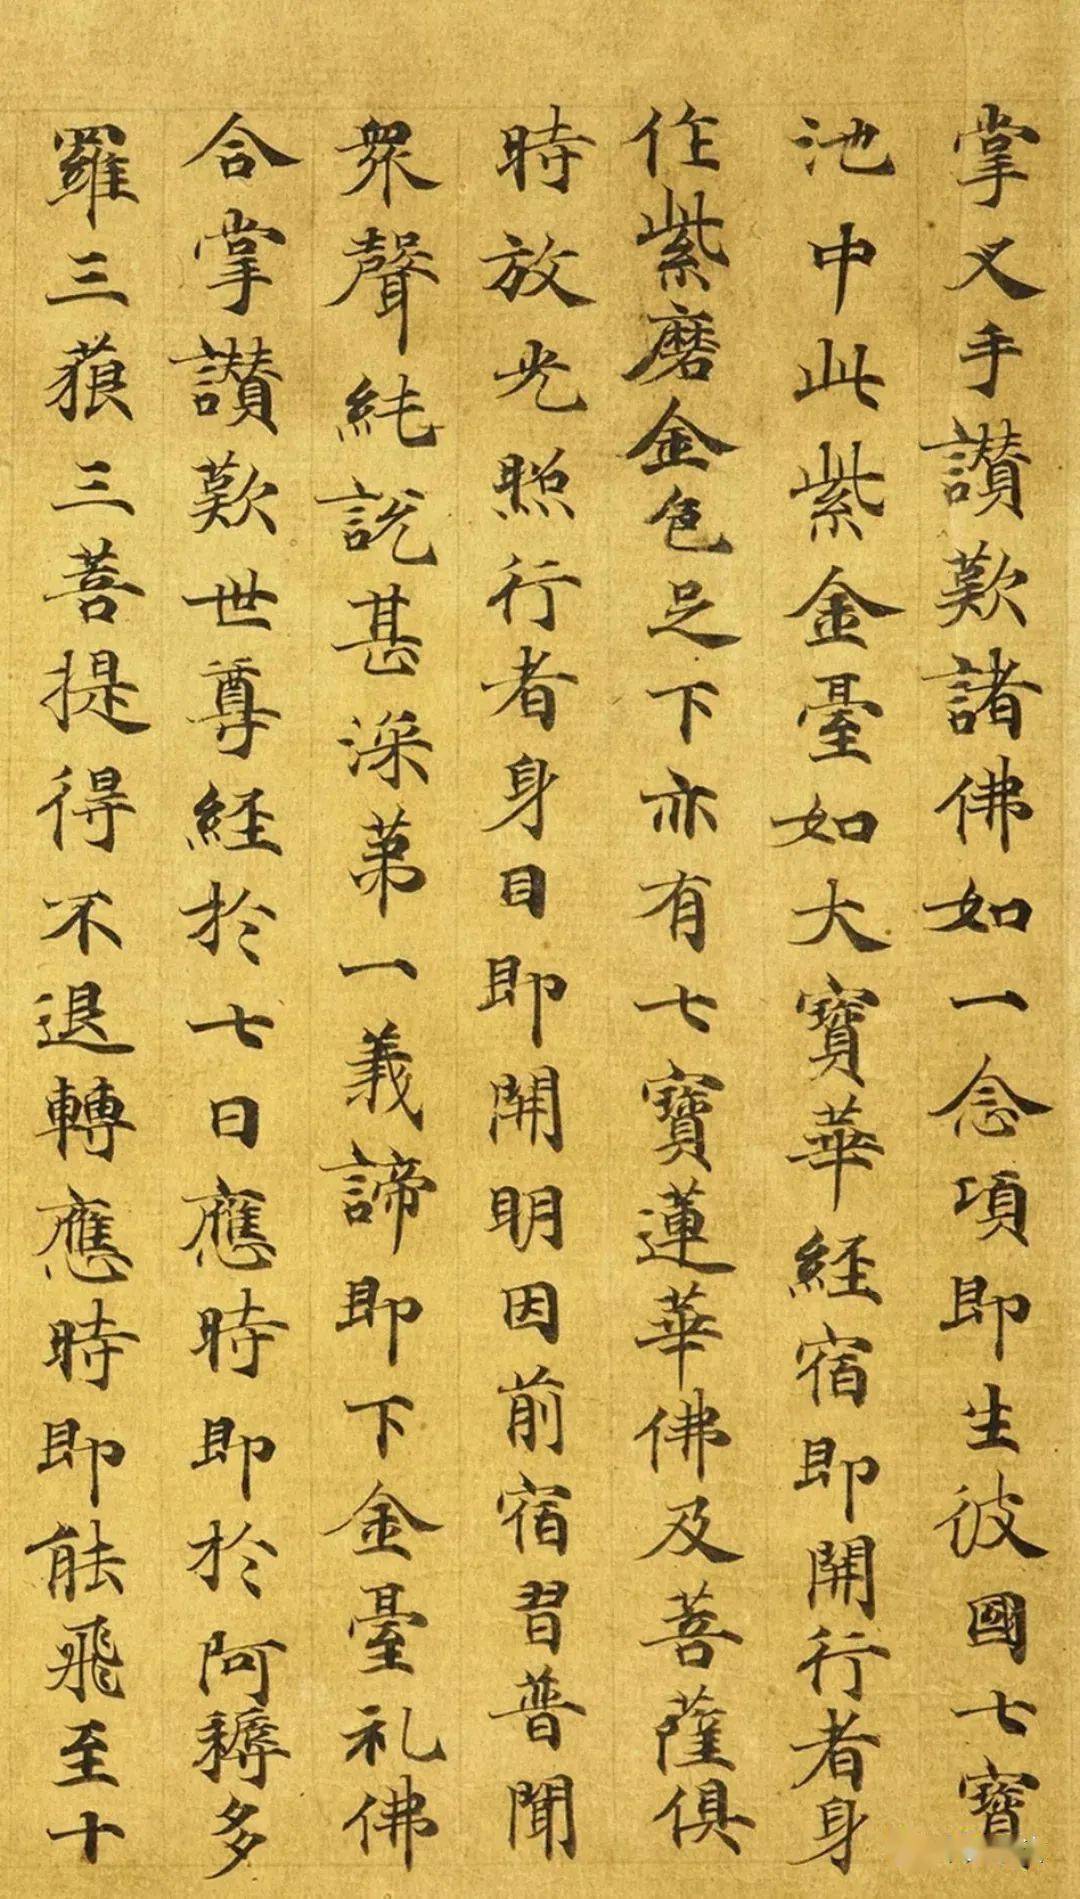 掌叉手讃歎諸佛如一念項即生彼國七寶
池中此紫金臺如大寶華經宿即開行者身
作紫磨金色足下亦有七寶蓮華佛及菩薩俱
時放光照行者身目即開明因前宿習普聞
衆聲純説甚深第一義諦即下金臺礼佛
合掌讃歎世尊經於七日應時即於阿耨多
羅三藐三菩提得不退轉應時即能飛至十